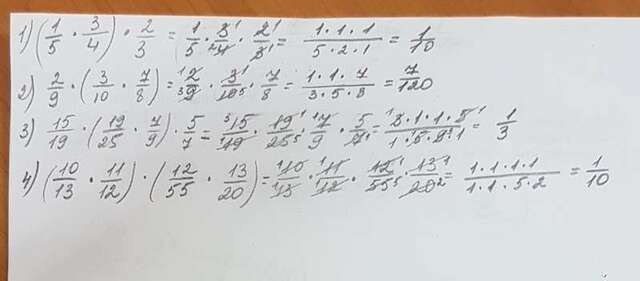 1) (1/5 · 3/4) · 2/3 = 1/5 · 3¹/₂4 · 2¹/3₁ = 1·1·1/5·2·1 = 1/10
2) 2/9 · (3/10 · 7/8) = ¹2/₃9 · 3¹/10₅ · 7/8 = 1·1·7/3·5·8 = 7/120
3) 15/19 · (19/25 · 7/9) · 5/7 = ³15/₁19 · 19¹/25₅ · ¹7/9 · 5/7₁ = ¹3·1·1·5¹/1·5·9·1 = 1/3
4) (10/13 · 11/12) · (12/55 · 13/20) = ¹10/₁13 · ¹11/₁12 · 12¹/55₅ · 13¹/20₂ = 1·1·1·1/1·1·5·2 = 1/10